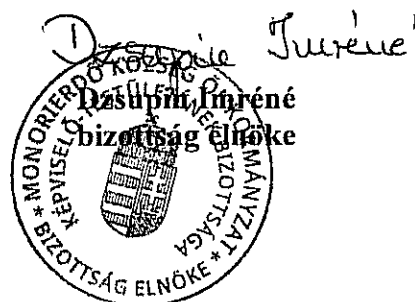 Dzsupin Imréné
Dzsupin Imréné
bizottság elnöke
* MONORIERDŐ KÖZSÉG ÖNKORMÁNYZAT *
KÉPVISELŐ-TESTÜLETÉNEK BIZOTTSÁGA
BIZOTTSÁG ELNÖKE